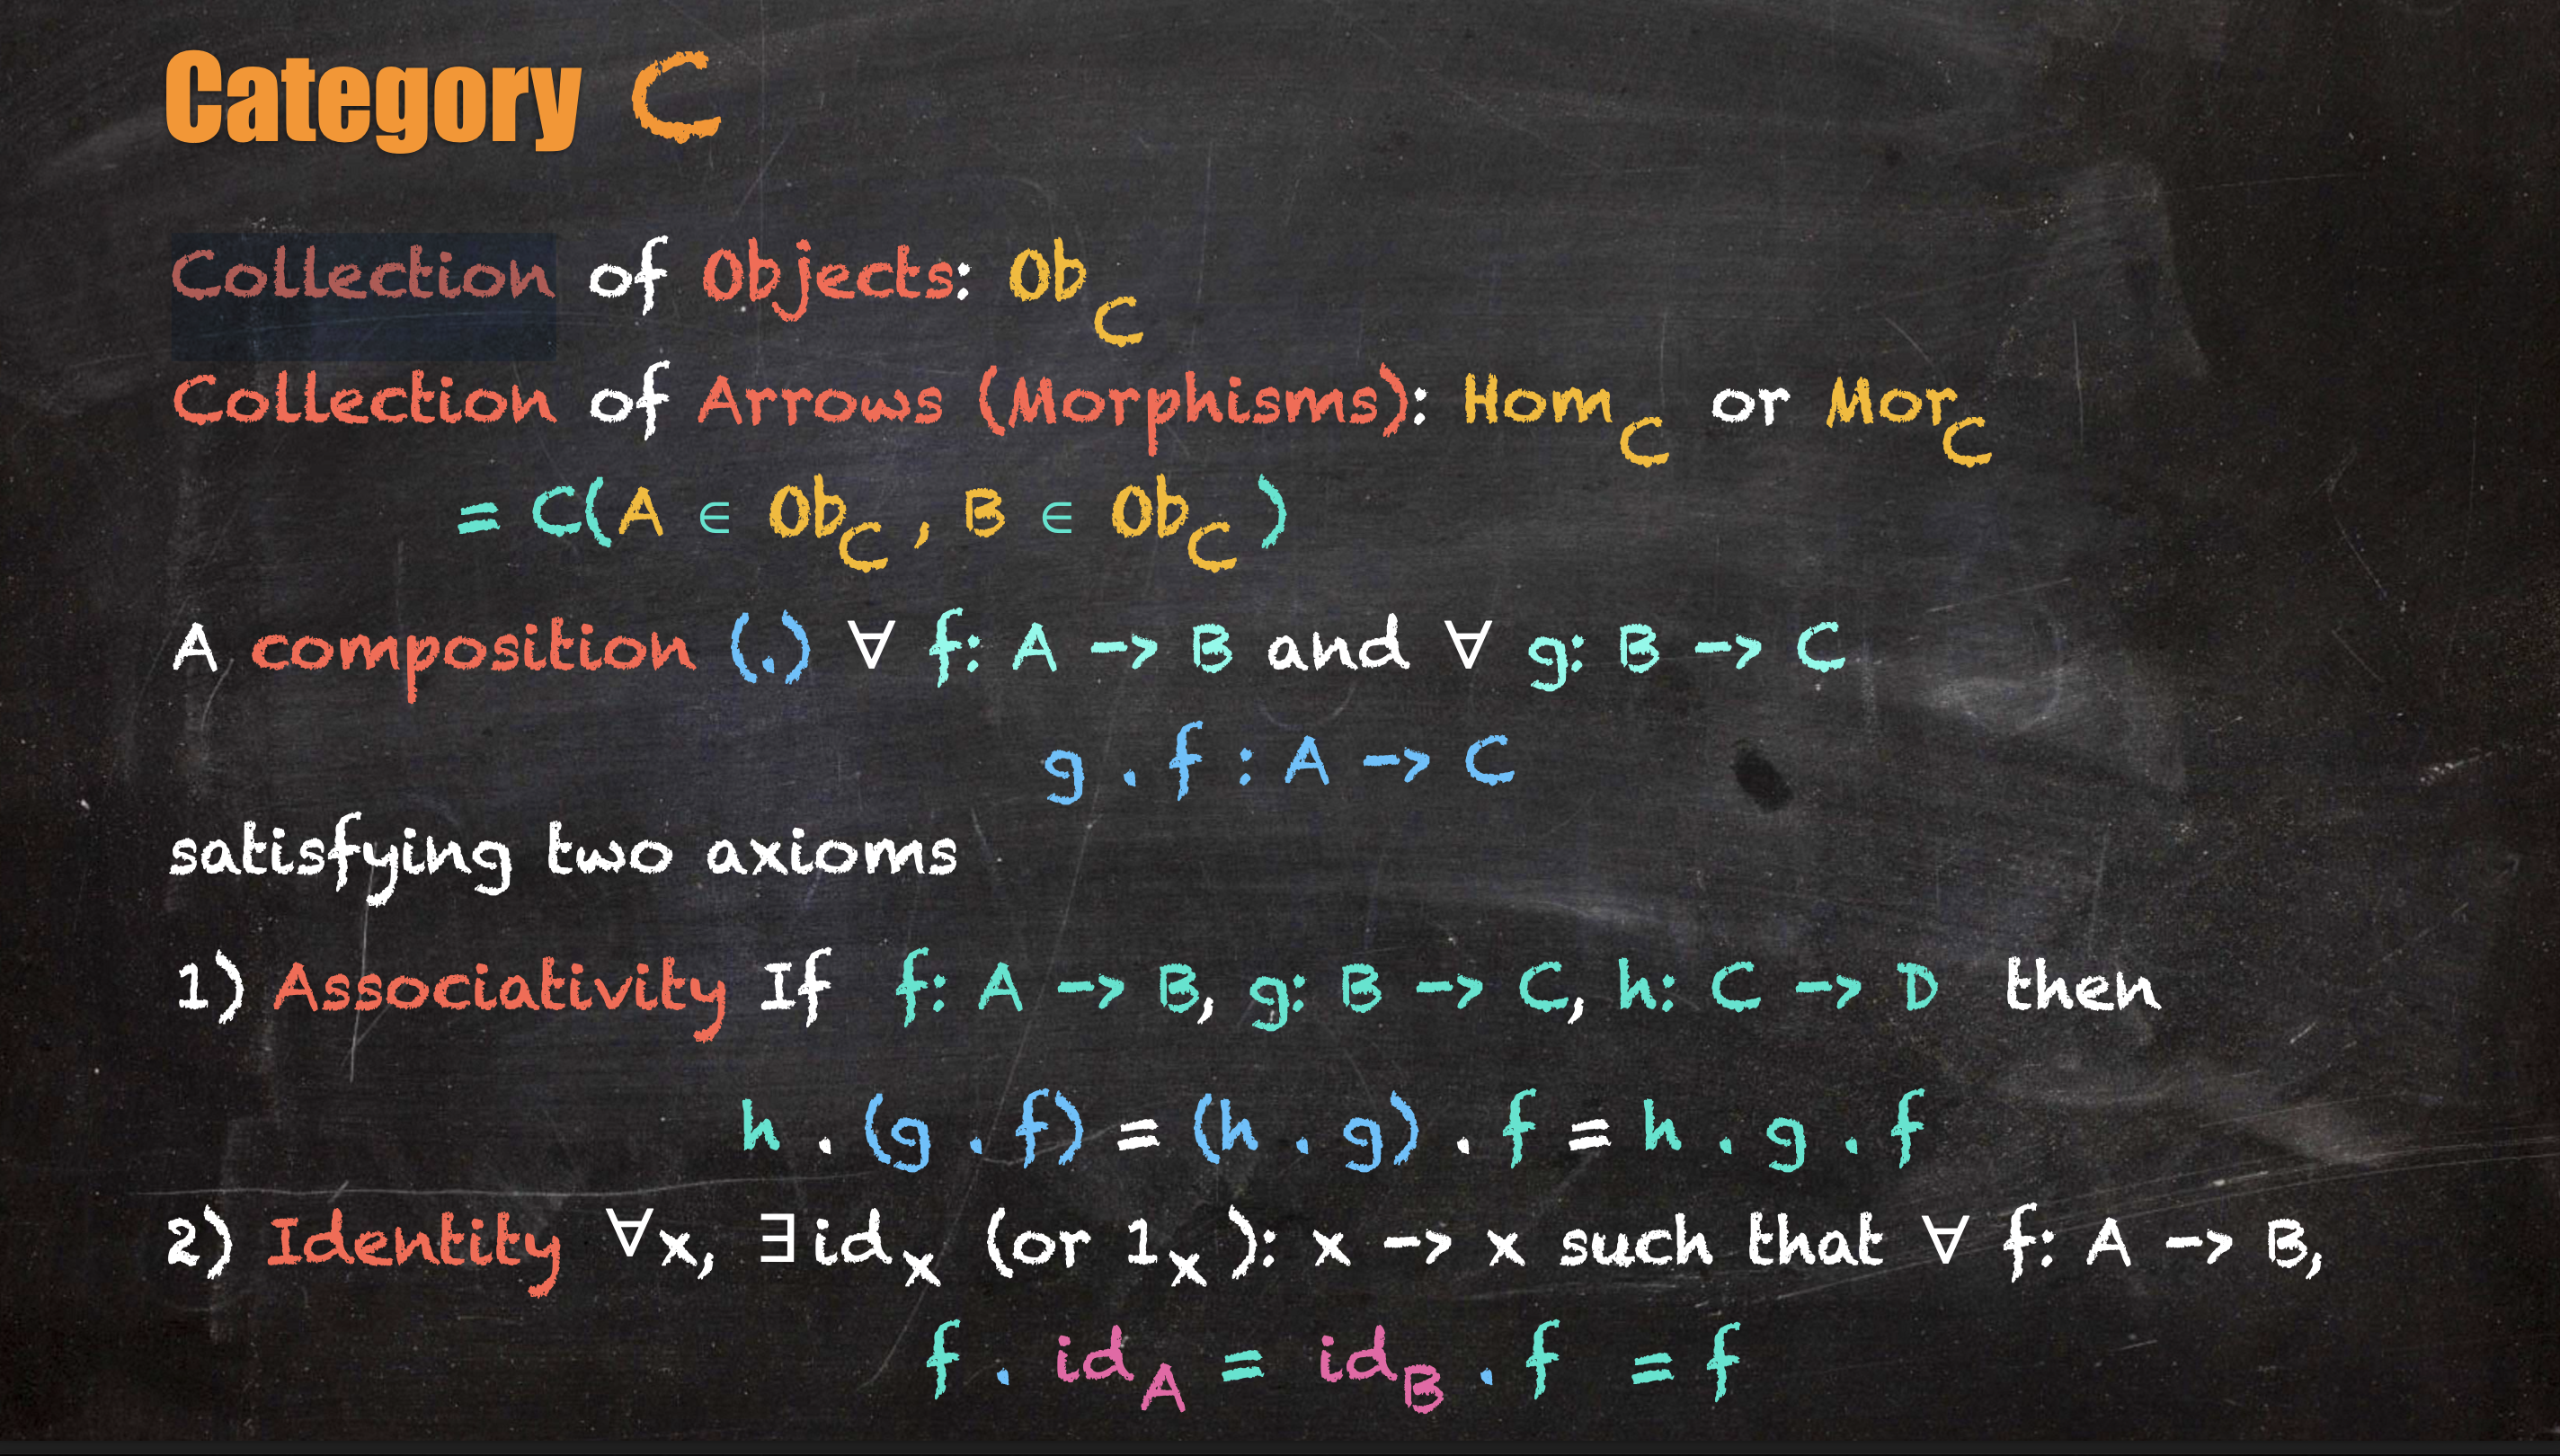 Category C
Collection of Objects: Ob_C
Collection of Arrows (Morphisms): Hom_C or Mor_C
= C(A ∈ Ob_C , B ∈ Ob_C )
A composition (.) ∀ f: A -> B and ∀ g: B -> C
g . f : A -> C
satisfying two axioms
1) Associativity If f: A -> B, g: B -> C, h: C -> D then
h . (g . f) = (h . g) . f = h . g . f
2) Identity ∀x, ∃id_x (or 1_x ): x -> x such that ∀ f: A -> B,
f . id_A = id_B . f = f